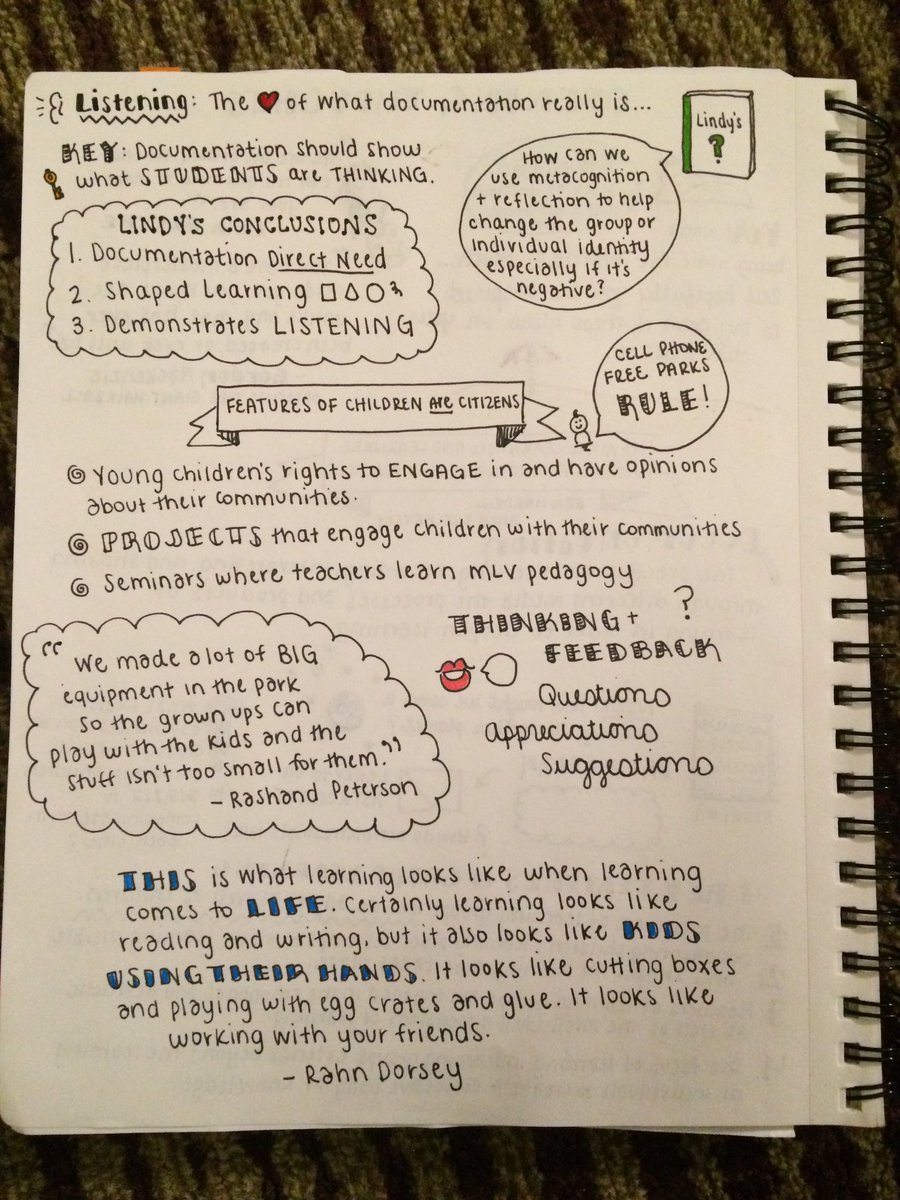 Listening: The ♥ of what documentation really is...
Lindy's
?
KEY: Documentation should show
what STUDENTS are THINKING.
How can we
use metacognition
+ reflection to help
change the group or
individual identity
especially if it's
negative?
LINDY'S CONCLUSIONS
1. Documentation Direct Need
2. Shaped Learning
3. Demonstrates LISTENING
CELL PHONE
FREE PARKS
RULE!
FEATURES OF CHILDREN Are CITIZENS
Young children's rights to ENGAGE in and have opinions
about their communities.
PROJECTS that engage children with their communities
Seminars where teachers learn MLV pedagogy
THINKING + ?
FEEDBACK
Questions
Appreciations
Suggestions
"We made a lot of BIG
equipment in the park
so the grown ups can
play with the kids and the
stuff isn't too small for them."
- Rashand Peterson
THIS is what learning looks like when learning
comes to LIFE. Certainly learning looks like
reading and writing, but it also looks like KIDS
USING THEIR HANDS. It looks like cutting boxes
and playing with egg crates and glue. It looks like
working with your friends.
- Rahn Dorsey